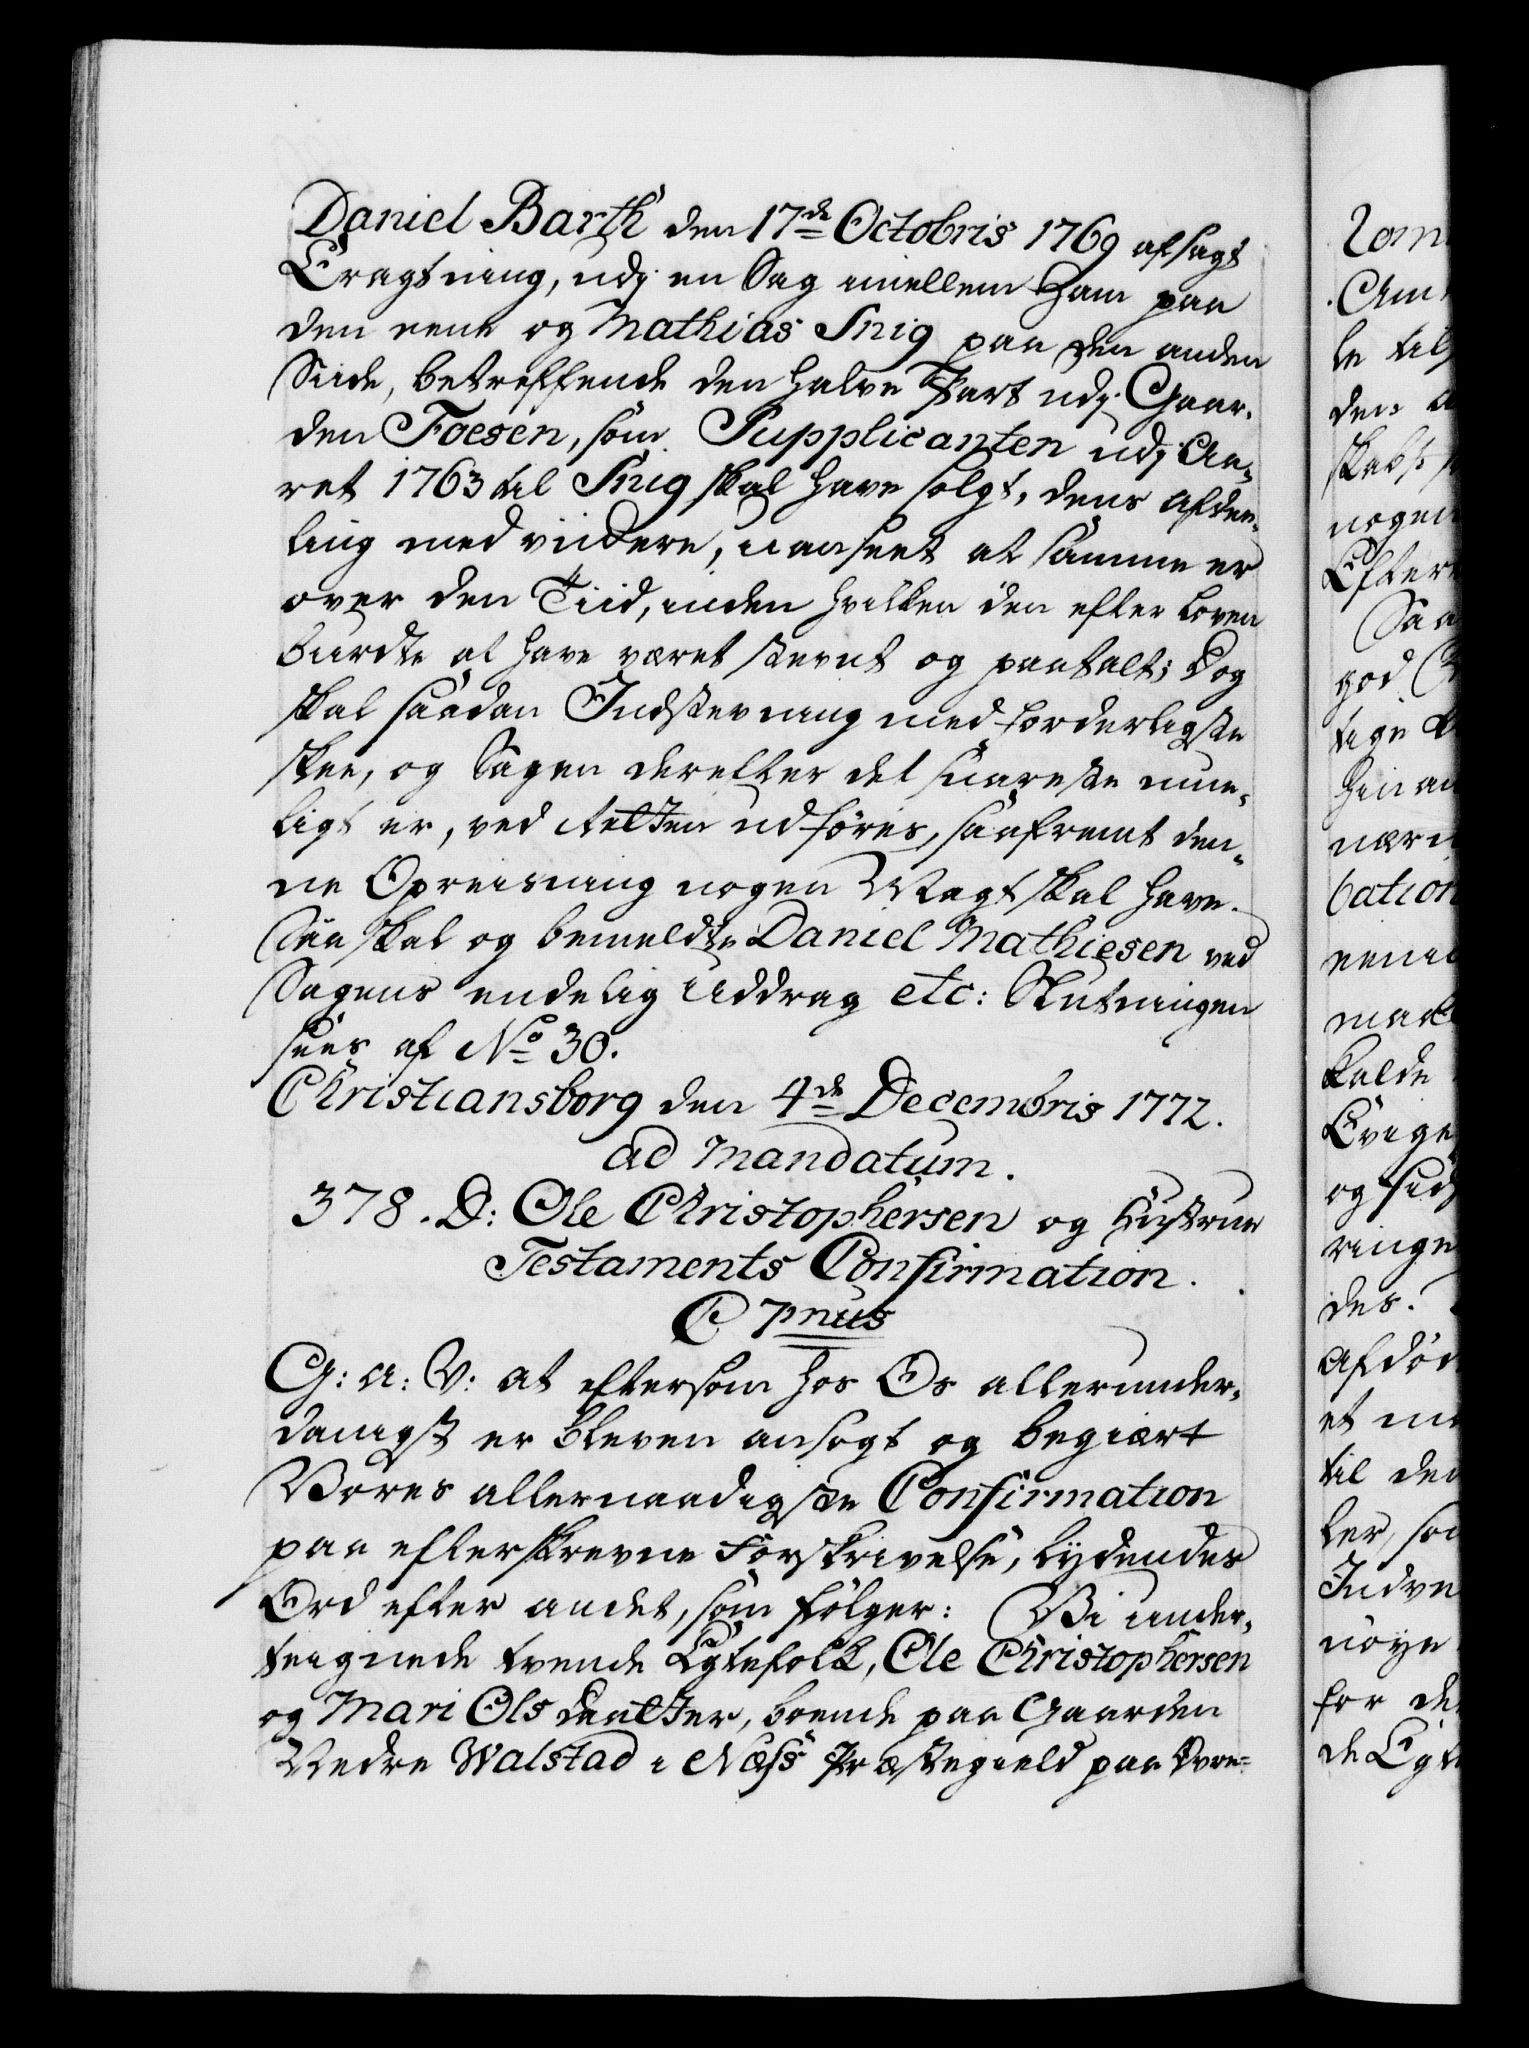 Daniel Barth den 17de Octobris 1769 afsagt
Eragtning, udj en Sag imellem Ham paa
den eene og Mathias Snig paa den anden
Siide, betreffende den halve Part udj Gaar-
den Foesen, som Supplicanten udj Aa-
ret 1763 til Snig skal have solgt, dens Afdee-
ling med viidere, uanseet at samme er
over den Tiid, inden hvilken den efter Loven
burdte at have været stevnt og paatalt; Dog
skal saadan Indstevning med forderligste
skee, og Sagen derefter det snareste mue-
ligt er, ved Retten udføres, saafremt den-
ne Opreisning nogen Magt skal have.
Saa skal og bemeldte Daniel Mathiesen ved
Sagens endelig Uddrag etc: Slutningen
sees af No 30.
Christiansborg den 4de Decembris 1772.
ad Mandatum.
378. D: Ole Christophersen og Hustrue
Testaments Confirmation.
C 7nus
G: A: V: at eftersom hos Os allerunder-
danigst er bleven ansøgt og begiært
Vores allernaadigste Confirmation
paa efterskrevne Forskrivelse, lydendes
Ord efter andet, som følger: Vi under-
teignede tvende Egtefolk, Ole Christophersen
og Mari Ols Daatter, boende paa Gaarden
Nedre Walstad i Næss Præstegield paa Øvre-